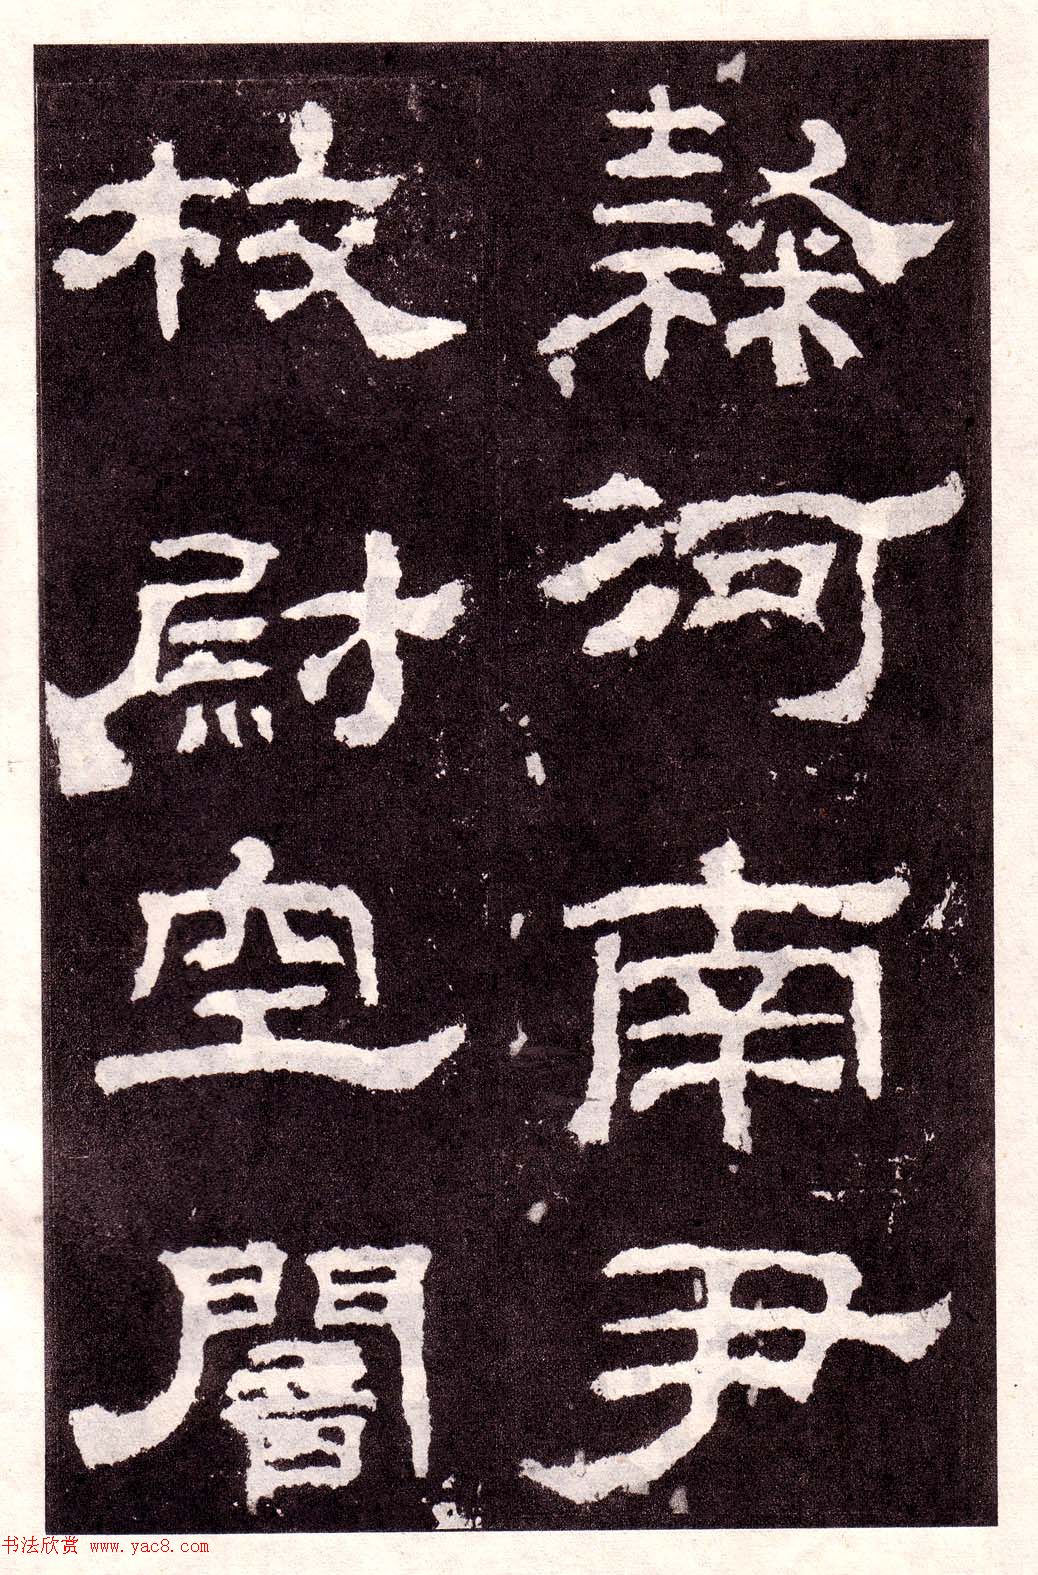 隸河南尹
校尉空闇
书法欣赏 www.yac8.com